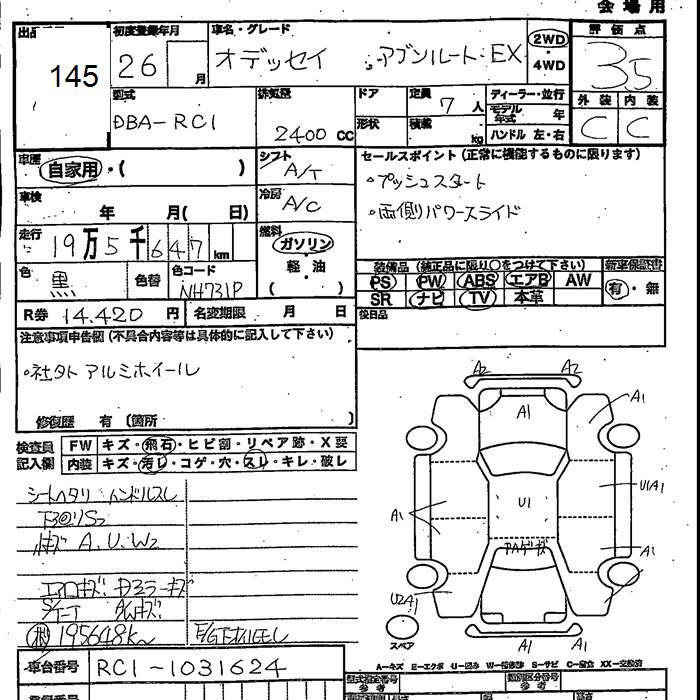 会場用
出品
145
初度登録年月
26 月
車名・グレード
オデッセイ アブソルート・EX
2WD
4WD
評価点
3.5
外装 内装
C C
型式
DBA-RC1
排気量
2400 cc
ドア
形状
定員 7 人
積載 kg
ディーラー・並行
モデル年式 年
ハンドル 左・右
車歴
自家用・( )
シフト
A/T
車検
年 月( 日)
冷房
A/C
走行
19万5千647km
燃料
ガソリン
軽・油
( )
色
黒
色替
色コード
NH731P
R券 14.420 円
名変期限 月 日
セールスポイント(正常に機能するものに限ります)
・プッシュスタート
・両側パワースライド
装備品(純正品に限り○をつけて下さい)
新車保証書
PS PW ABS エアB AW
SR ナビ TV 本革
有・無
後日品
注意事項申告欄(不具合内容等は具体的に記入して下さい)
・社外アルミホイール
修復歴 有〔箇所 〕
検査員
記入欄
FW キズ・飛石・ヒビ割・リペア跡・X要
内装 キズ・汚レ・コゲ・穴・スレ・キレ・破レ
シートヘタリ ハンドルスレ
A.U.W2
エアロキズ
195648k
A2 A2
A1
A1
U1
U1A1
A1
A1
A1 A1
スペア
A-キズ E-エクボ U-凹み W-修理跡 S-サビ C-腐食 XX-交換済
車台番号
RC1-1031624
型式指定番号
参考
類別区分番号
参考